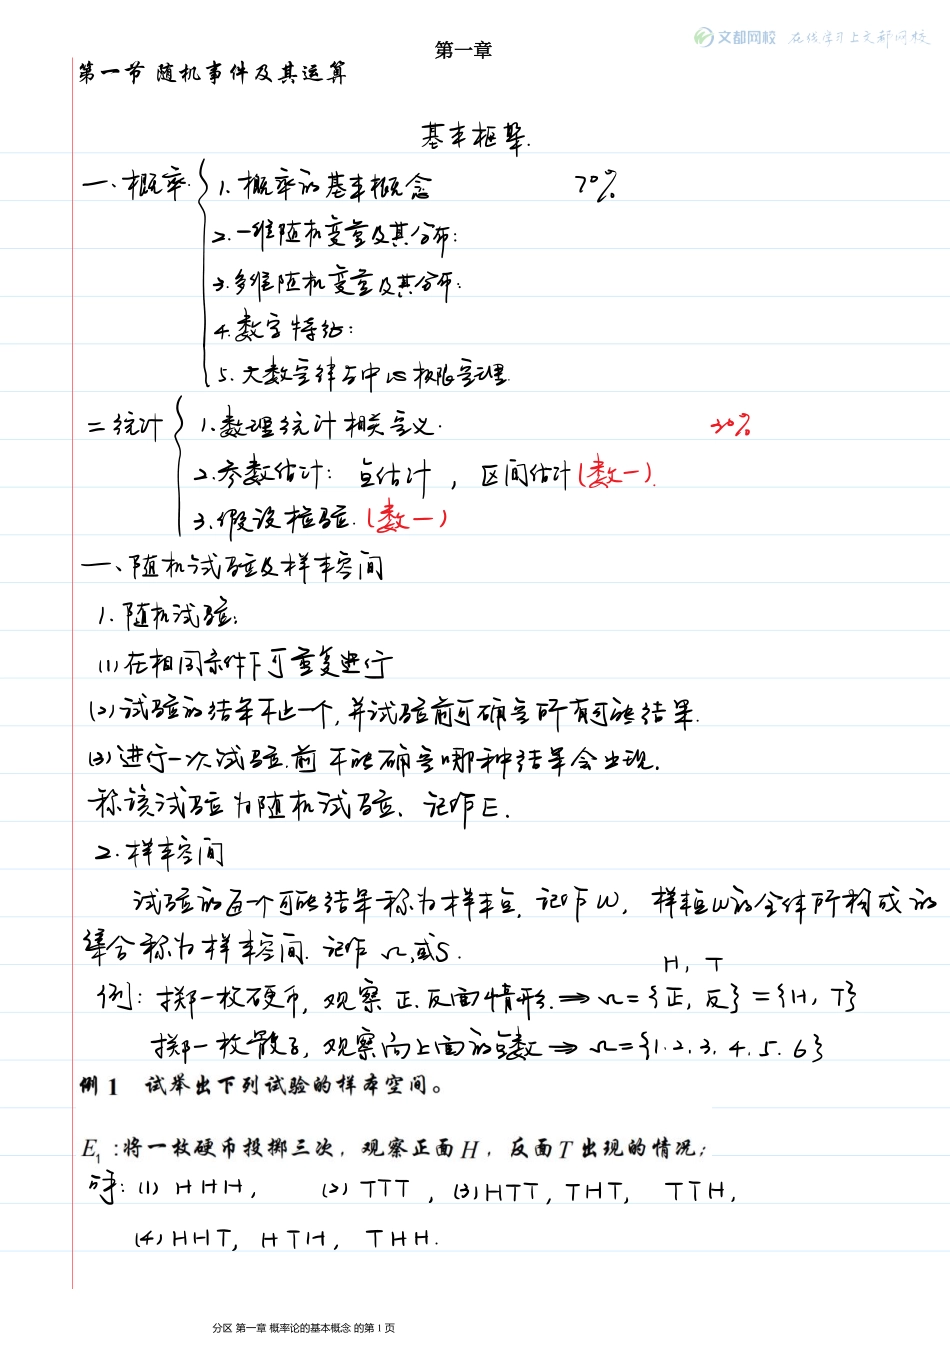 文都网校 在线学习上文都网校
第一章
第一节 随机事件及其运算
基本框架.
一、概率. 1. 概率的基本概念 70%
2. 一维随机变量及其分布:
3. 多维随机变量及其分布:
4. 数字特征:
5. 大数定律与中心极限定理.
二 统计 1. 数理统计相关定义. 30%
2. 参数估计: 点估计, 区间估计(数一).
3. 假设检验. (数一)
一、随机试验及样本空间
1. 随机试验:
(1) 在相同条件下可重复进行
(2) 试验的结果不止一个, 并试验前可确定所有可能结果.
(3) 进行一次试验.前 不能确定哪种结果会出现.
称该试验为随机试验. 记作E.
2. 样本空间
试验的每个可能结果称为样本点, 记作 ω, 样本点ω的全体所构成的
集合称为样本空间. 记作 Ω,或S.
H, T
例: 掷一枚硬币, 观察 正.反面情形. ⇒ Ω={正, 反}={H, T}
掷一枚骰子, 观察向上面的点数 ⇒ Ω={1.2.3.4.5.6}
例 1 试举出下列试验的样本空间。
E₁ :将一枚硬币投掷三次, 观察正面 H , 反面 T 出现的情况;
解: (1) HHH, (2) TTT , (3) HTT, THT, TTH,
(4) HHT, HTH, THH.
分区 第一章 概率论的基本概念 的第 1 页